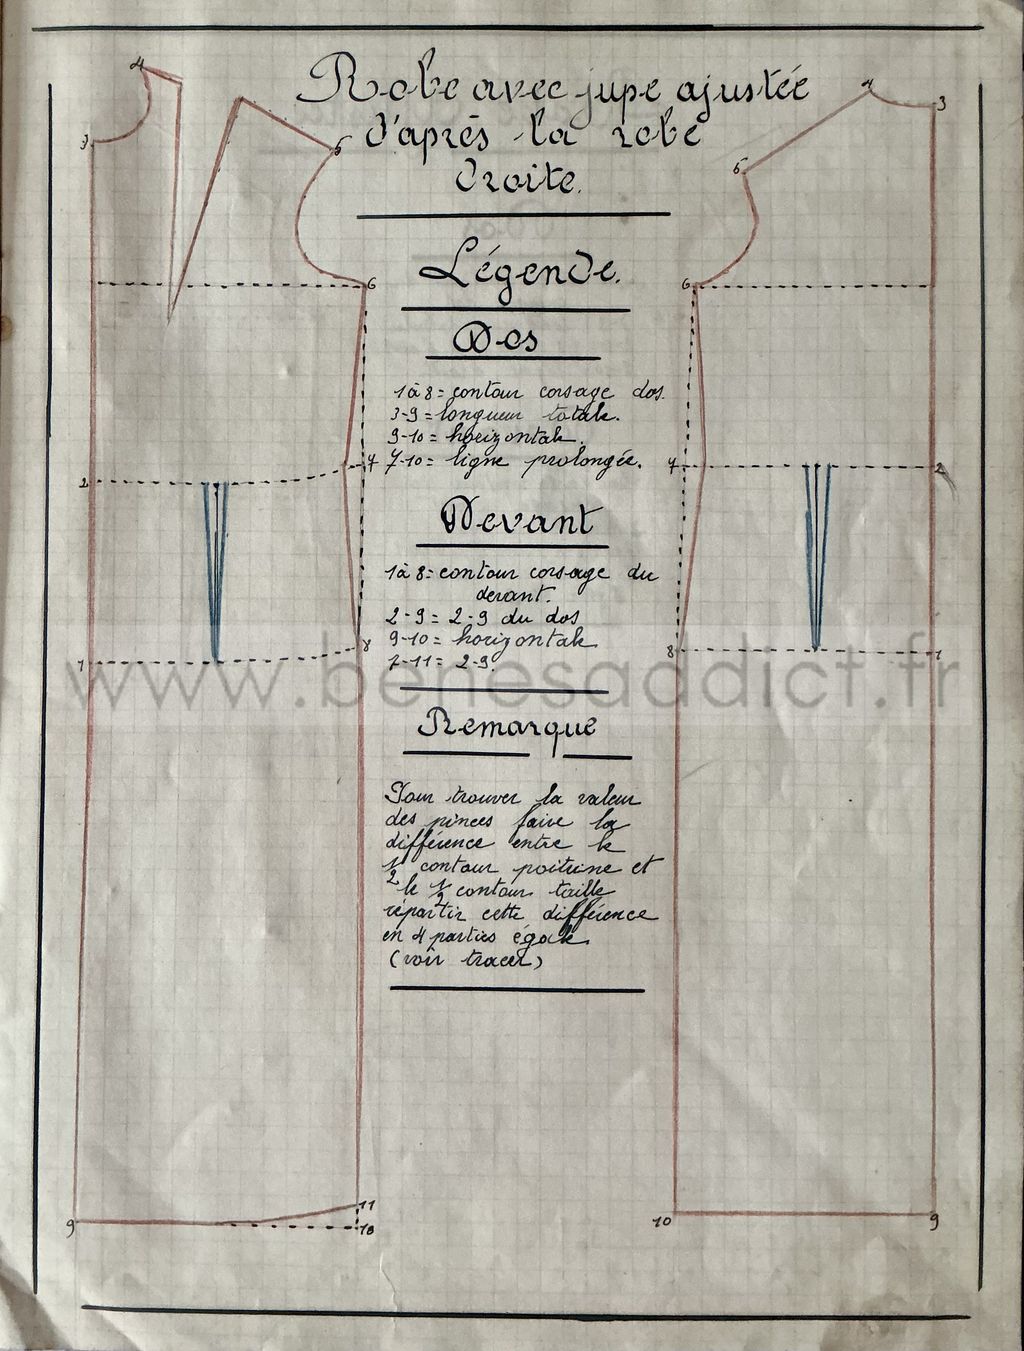 Robe avec jupe ajustée
d'après la robe
droite.
Légende.
Dos
1 à 8 = contour corsage dos.
3-9 = longueur totale.
9-10 = horizontale.
7-10 = ligne prolongée.
Devant
1 à 8 = contour corsage du
devant.
2-9 = 2-9 du dos
9-10 = horizontale
7-11 = 2-9.
Remarque
Pour trouver la valeur
des pinces faire la
différence entre le
1/2 contour poitrine et
le 1/2 contour taille
répartir cette différence
en 4 parties égale
(voir tracer)
4
3
5
6
7
2
8
1
9
11
10
4
3
5
6
7
2
8
1
10
9
www.benesaddict.fr